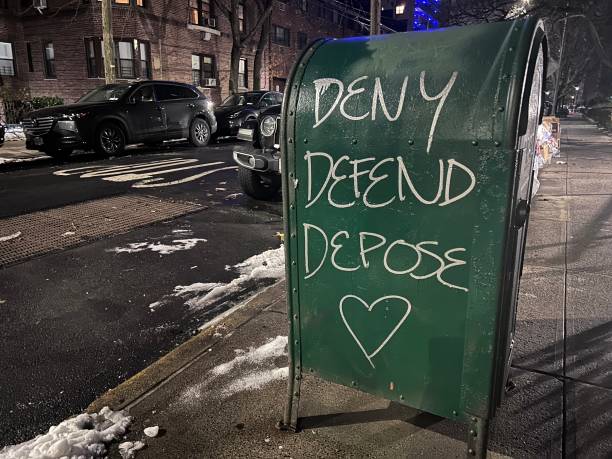 DENY
DEFEND
DEPOSE